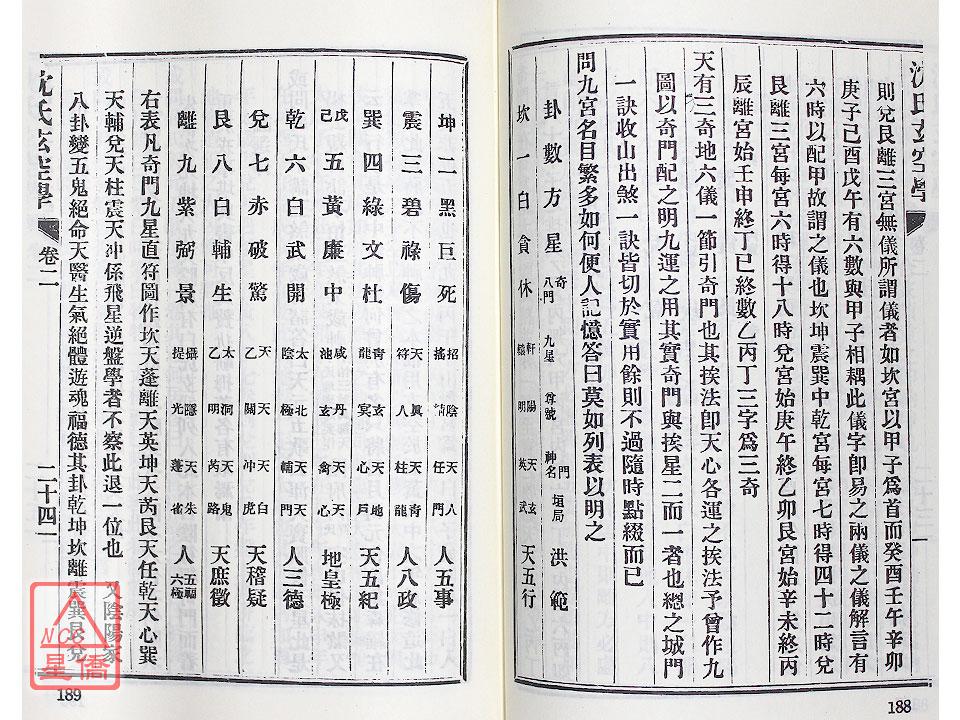 沈氏玄空學
則兌艮離三宮無儀所謂儀者如坎宮以甲子爲首而癸酉壬午辛卯
庚子己酉戊午有六數與甲子相耦此儀字卽易之兩儀之儀解言有
六時以配甲故謂之儀也坎坤震巽中乾宮每宮七時得四十二時兌
艮離三宮每宮六時得十八時兌宮始庚午終乙卯艮宮始辛未終丙
辰離宮始壬申終丁巳終數乙丙丁三字爲三奇
天有三奇地六儀一節引奇門也其挨法卽天心各運之挨法予曾作九
圖以奇門配之明九運之用其實奇門與挨星二而一者也總之城門
一訣收山出煞一訣皆切於實用餘則不過隨時點綴而已
問九宮名目繁多如何便人記憶答曰莫如列表以明之
卦數方星 奇八門 九星 尊號 門神名 垣局 洪範
坎一白貪休 軒轅 陽明 天英 玄武 天五行
188
坤二黑巨死 招搖 陰 天任 人門 人五事
震三碧祿傷 天符 人 天柱 青龍 人八政
巽四綠文杜 青龍 玄冥 天心 地戶 天五紀
戊己五黃廉中 咸池 丹玄 天禽 天心 地皇極
乾六白武開 太陰 北極 天輔 天門 人三德
兌七赤破驚 天乙 天關 天冲 白虎 天稽疑
艮八白輔生 太乙 洞明 天芮 鬼路 天庶徵
離九紫弼景 攝提 隱光 天蓬 朱雀 人五福六極
右表凡奇門九星直符圖作坎天蓬離天英坤天芮艮天任乾天心巽
天輔兌天柱震天冲係飛星逆盤學者不察此退一位也 又陰陽家
八卦變五鬼絕命天醫生氣絕體遊魂福德其卦乾坤坎離震巽艮兌
沈氏玄空學
卷二
二十四
189
NCC
星僑